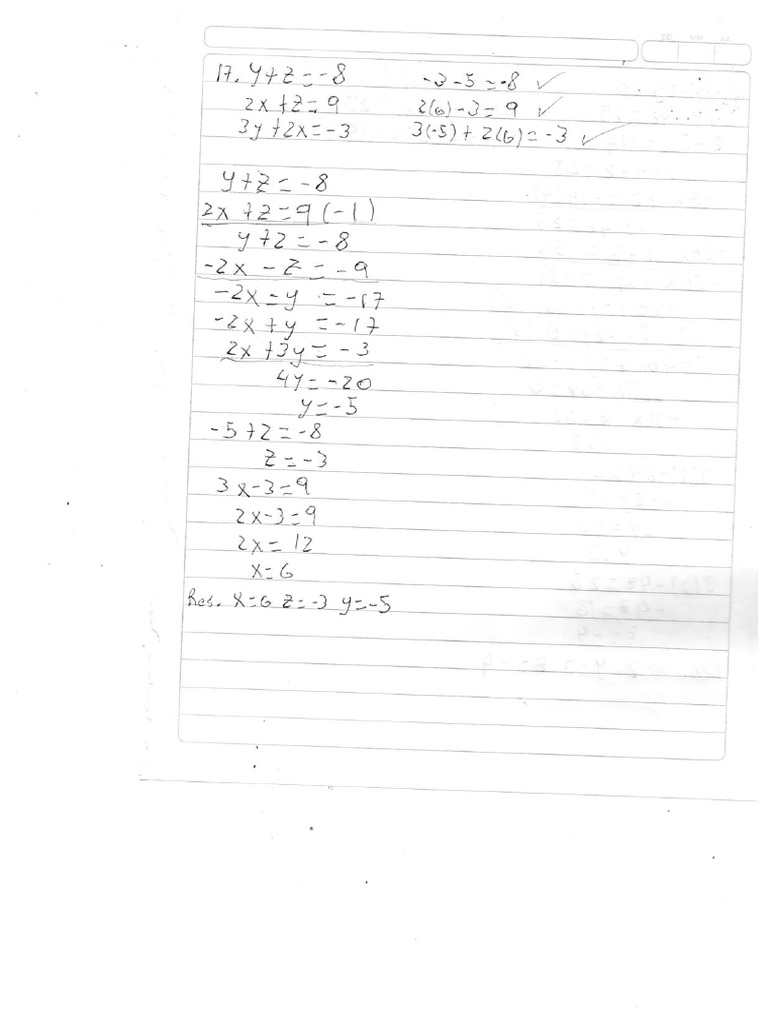 17. y+z=-8 -3-5=-8 ✓
2x+z=9 2(6)-3=9 ✓
3y+2x=-3 3(-5)+2(6)=-3 ✓
y+z=-8
2x+z=9(-1)
y+z=-8
-2x-z=-9
-2x=y=-17
-2x+y=-17
2x+3y=-3
4y=-20
y=-5
-5+z=-8
z=-3
3x-3=9
2x-3=9
2x=12
x=6
Res. x=6 z=-3 y=-5